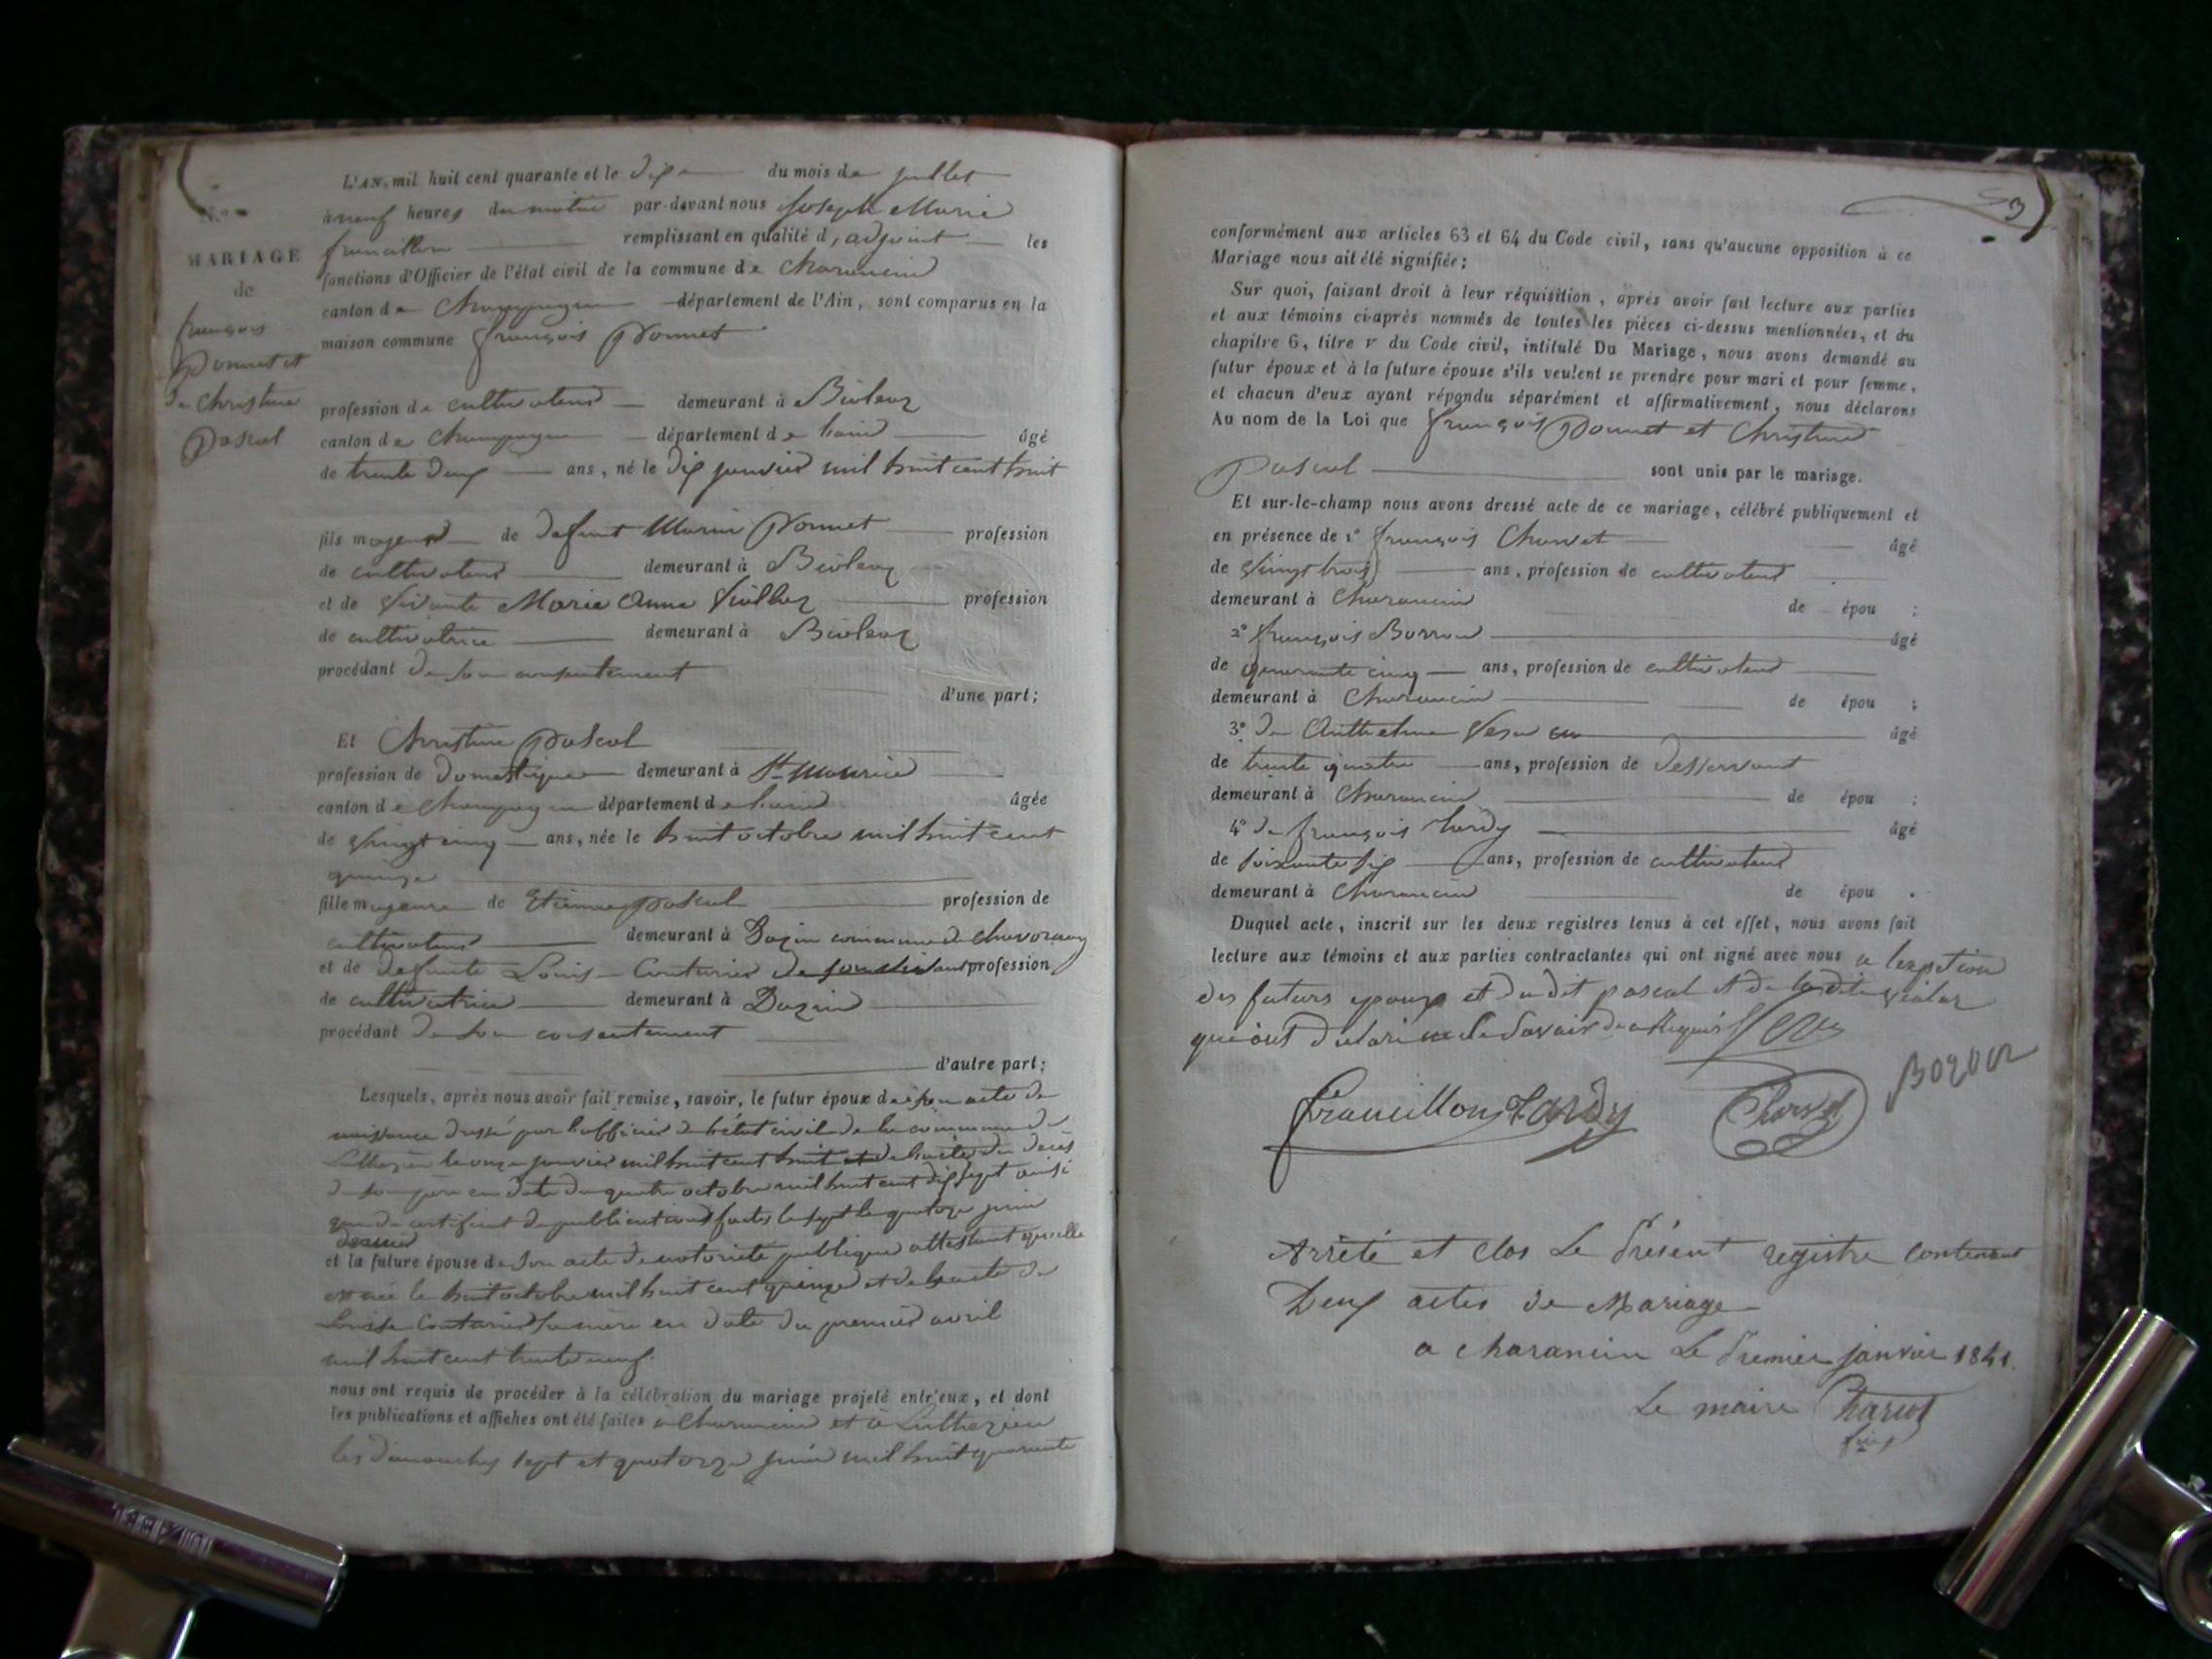 L'AN mil huit cent quarante et le dix du mois de juillet
à neuf heures du matin par-devant nous Joseph Marie
francillon remplissant en qualité d, adjoint les
fonctions d'Officier de l'état civil de la commune de Charancin
canton de Champagne département de l'Ain, sont comparus en la
maison commune françois Ponnet
profession de cultivateur demeurant à Bioleaz
canton de Champagne département de lain âgé
de trente deux ans, né le dix janvier mil huit cent huit
fils majeur de defunt Marin Ponnet profession
de cultivateur demeurant à Bioleaz
et de vivante Marie Anne profession
de cultivatrice demeurant à Bioleaz
procédant de son consentement
d'une part;
Et Christine pascal
profession de Domestique demeurant à St Maurice
canton de Champagne département de lain âgée
de vingt cinq ans, née le huit octobre mil huit cent
quinze
fille majeure de Etienne pascal profession de
cultivateur demeurant à Dazin commune de chavornay
et de defunte Louis Couturier de son vivant profession
de cultivatrice demeurant à Dazin
procédant de son consentement
d'autre part;
Lesquels, après nous avoir fait remise, savoir, le futur époux de son acte de
naissance dressé par l'officier de l'état civil de la commune de
Luthezieu le onze janvier mil huit cent huit et de l'acte de décès
de son père en date du quatre octobre mil huit cent dix sept ainsi
que de certificat de publications faites le sept le quatorze juin
dernier
et la future épouse de son acte de notoriété publique attestant qu'elle
est née le huit octobre mil huit cent quinze et de l'acte de
Louise Couturier sa mère en date du premier avril
mil huit cent trente neuf.
nous ont requis de procéder à la célébration du mariage projeté entr'eux, et dont
les publications et affiches ont été faites à Charancin et à Luthezieu
les dimanches sept et quatorze juin mil huit quarante
MARIAGE
de
françois
Ponnet et
de Christine
Pascal
3
conformément aux articles 63 et 64 du Code civil, sans qu'aucune opposition à ce
Mariage nous ait été signifiée;
Sur quoi, faisant droit à leur réquisition, après avoir fait lecture aux parties
et aux témoins ci-après nommés de toutes les pièces ci-dessus mentionnées, et du
chapitre 6, titre v du Code civil, intitulé Du Mariage, nous avons demandé au
futur époux et à la future épouse s'ils veulent se prendre pour mari et pour femme,
et chacun d'eux ayant répondu séparément et affirmativement, nous déclarons
Au nom de la Loi que françois Ponnet et Christine
Pascal sont unis par le mariage.
Et sur-le-champ nous avons dressé acte de ce mariage, célébré publiquement et
en présence de 1° françois Charvet âgé
de vingt trois ans, profession de cultivateur
demeurant à Charancin de épou ;
2° françois Borron âgé
de quarante cinq ans, profession de cultivateur
demeurant à Charancin de épou ;
3° de Anthelme âgé
de trente quatre ans, profession de desservant
demeurant à Charancin de épou ;
4° de françois Tardy âgé
de soixante six ans, profession de cultivateur
demeurant à Charancin de épou .
Duquel acte, inscrit sur les deux registres tenus à cet effet, nous avons fait
lecture aux témoins et aux parties contractantes qui ont signé avec nous a lexption
des futurs epoux et du dit pascal et de la dite
qui ont de le savoir de ce requis
francillon Tardy Charvet
Arrêté et clos Le Présent registre contenant
Deux actes de Mariage
a charancin Le Premier janvier 1841.
Le maire